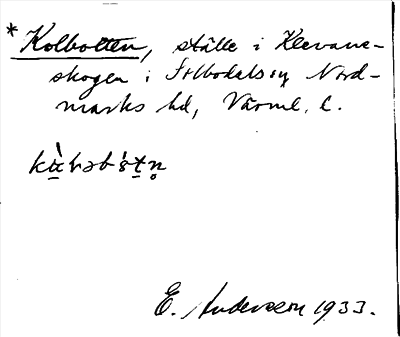 *Kolbotten, ställe i Klevane-
skogen i Silbodals sn Nord-
marks hd, Värml. l.
E. Andersson 1933.